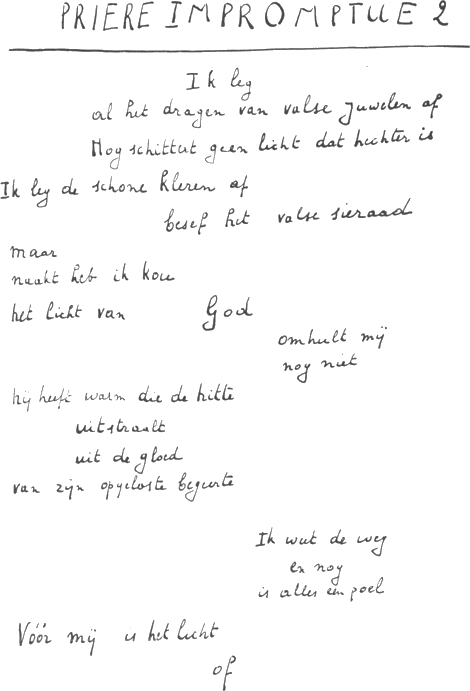 PRIERE IMPROMPTUE 2
Ik leg
al het dragen van valse juwelen af
Nog schittert geen licht dat hechter is
Ik leg de schone kleren af
besef het valse sieraad
maar
naakt heb ik kou
het licht van God
omhult mij
nog niet
hij heeft warm die de hitte
uitstraalt
uit de gloed
van zijn opgeloste begeerte
Ik weet de weg
en nog
is alles een poel
Vóór mij is het licht
of